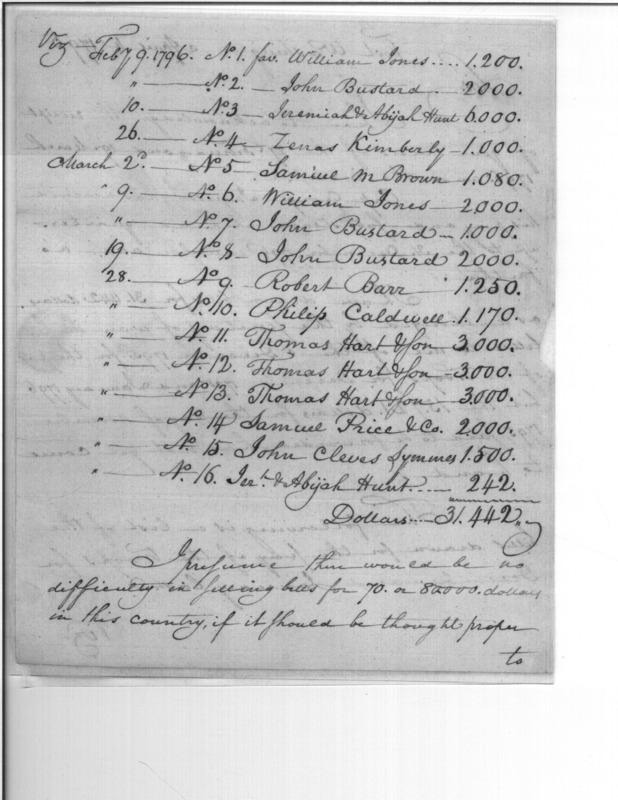 Viz Feby 9. 1796. No. 1. fav. William Jones .... 1.200.
" — No 2. — John Bustard . 2000.
10. — No 3 — Jeremiah & Abijah Hunt 6.000.
26. — No 4. — Zenas Kimberly — 1.000.
March 2d. — No 5 — Samuel M Brown 1.080.
" 9. — No. 6. William Jones — 2,000.
" — No 7. John Bustard — 1.000.
19. — No. 8 — John Bustard 2000.
28. — No 9. — Robert Barr 1.250.
" — No. 10. Philip Caldwell. 1.170.
" — No. 11. Thomas Hart & Son 3.000.
" — No. 12. Thomas Hart & Son — 3.000.
" — No 13. Thomas Hart & Son — 3.000.
" — No. 14 Samuel Price & Co. 2,000.
" — No. 15. John Cleves Symmes 1.500.
" — No. 16. Jerh. & Abijah Hunt .... 242.
Dollars .... 31.442 "
I presume there would be no
difficulty in selling bills for 70. or 80000. dollars
in this country, if it should be thought proper
to